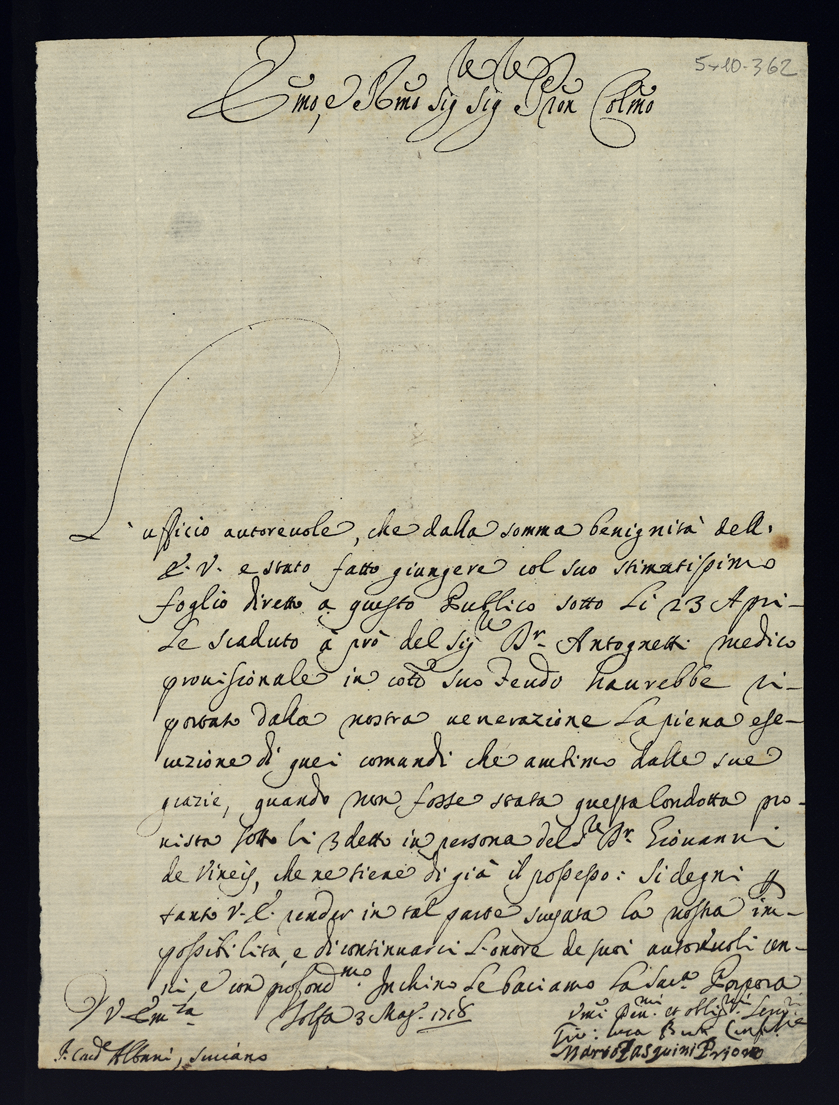 5-10-362
Emo, e Rmo Sig Sig Pron Colmo
L' ufficio autoreuole, che dalla somma benignità dell'
E. V. e stato fatto giungere col suo stimatissimo
foglio diretto a questo Publico sotto li 23 Apri-
le scaduto à prò del Sigre Dr. Antognetti medico
prouisionale in cotto suo Feudo haurebbe ri-
portato dalla nostra uenerazione la piena ese-
cuzione di quei comandi che ambimo dalle sue
grazie, quando non fosse stata questa Condotta pro-
uista sotto li 3 detto in persona del Dr. Giouanni
de Vineis, che ne tiene di già il possesso: Si degni p
tanto V. E. render in tal parte scusata la nostra im-
possibilita, e di continuarci l'onore de suoi autoreuoli cen-
ni, e con profondmo Inchino le baciamo la Sacra Porpora
D V. Emza Tolfa 3 Mag. 1718
Vmi Deumi et obligmi Seru
Gio: Luca
Marco Pasquini Priore
S. Card Albani, Suriano